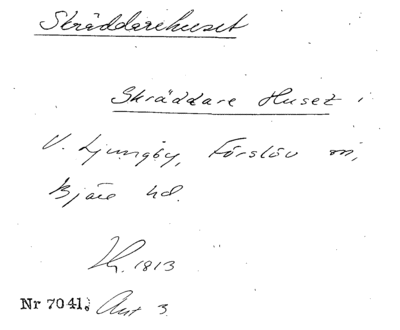 Skräddarehuset
Skräddare Huset i
V. Ljungby, Förslöv sn,
Bjäre hd.
Hr. 1813
Nr 7041. Ant 3.